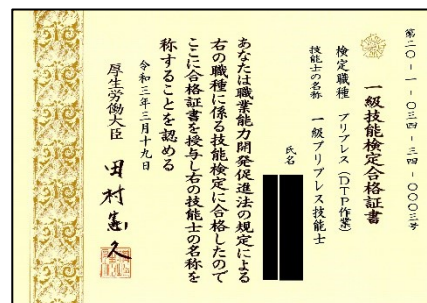 第二〇-一-〇三四-三四-〇〇〇三号
一級技能検定合格証書
検定職種 プリプレス(DTP作業)
技能士の名称 一級プリプレス技能士
氏名
あなたは職業能力開発促進法の規定による
右の職種に係る技能検定に合格したので
ここに合格証書を授与し右の技能士の名称を
称することを認める
令和三年三月十九日
厚生労働大臣 田村憲久